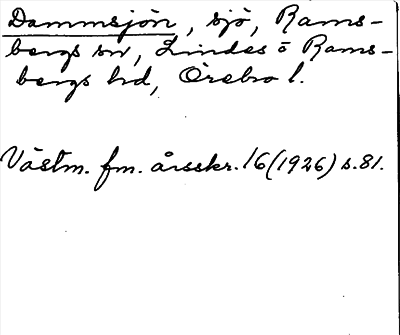 Dammsjön, sjö, Rams-
bergs sn, Lindes o Rams-
bergs hd, Örebro l.
Västm. fm. årsskr. 16 (1926) s. 81.